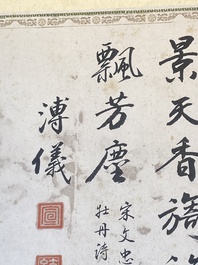 景天香
飄芳塵
宋文忠
牡丹詩
溥儀